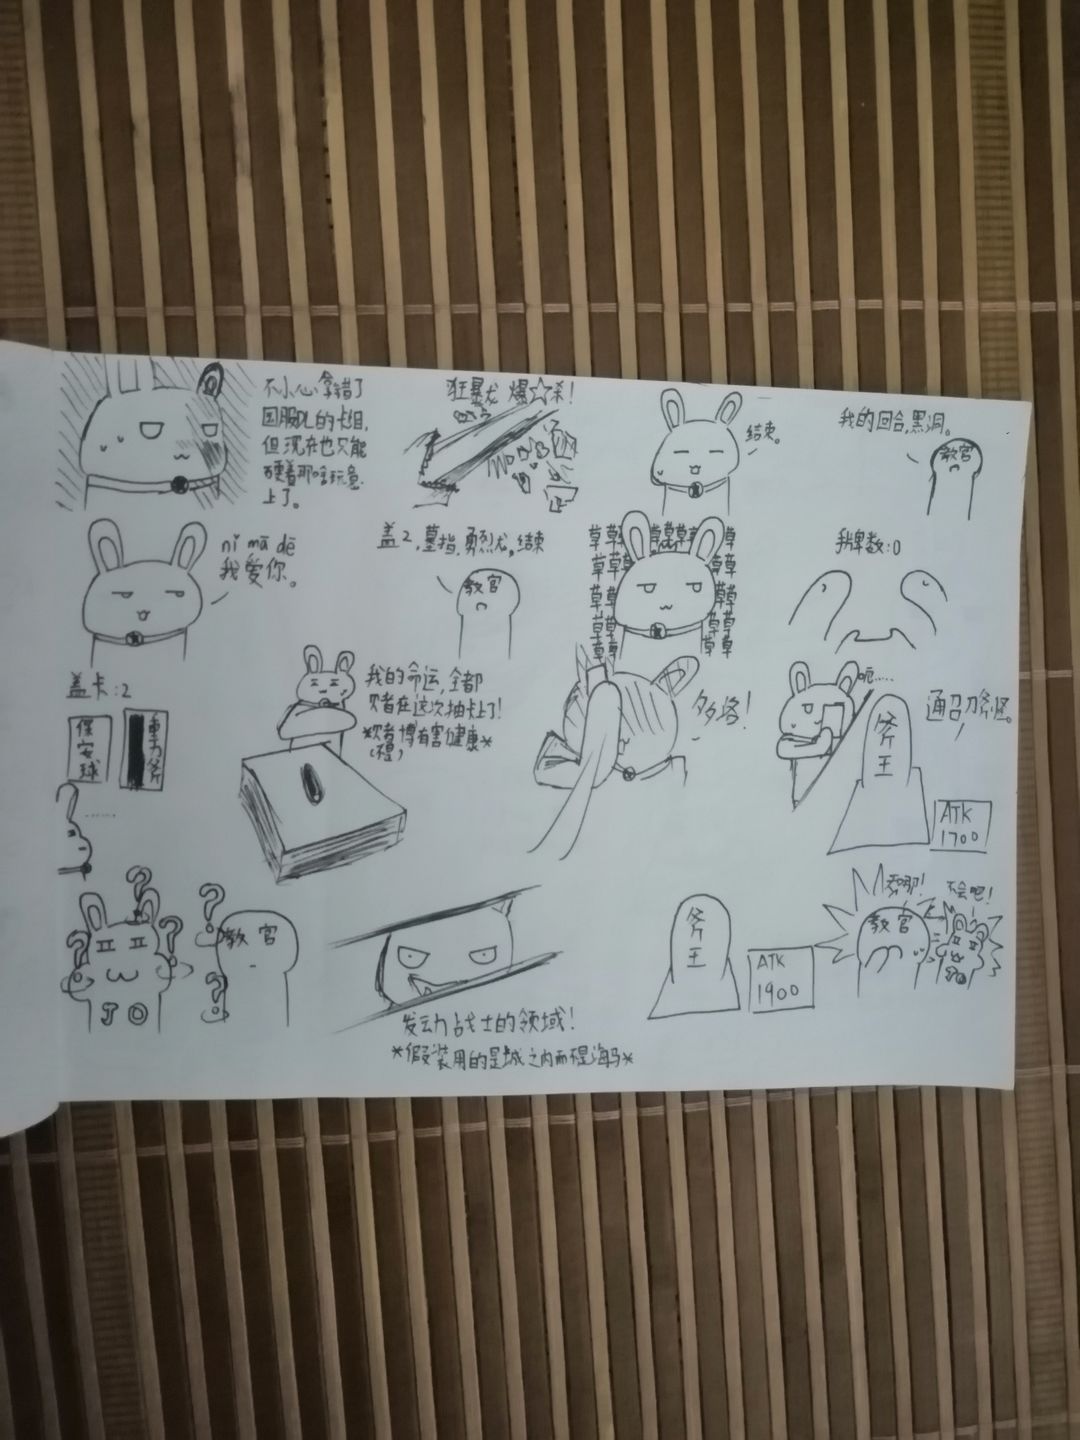 不小心拿错了
国服DL的卡组,
但现在也只能
硬着那啥玩意
上了。
狂暴龙 爆☆杀!
结束。
我的回合,黑洞。
教官
ni mā dē
我爱你。
盖2,墓指,勇烈龙。结束
教官
草草草草草草草
草草草
草草草
草草
草草
手牌数:0
盖卡:2
保安球
重力斧
……
我的命运,全都
赌在这次抽卡上了!
*赌博有害健康*
哆洛!
呃……
通召刀斧怪。
斧王
ATK
1700
? ? ? ?
教官
J O
发动战士的领域!
*假装用的是城之内而不是海马*
斧王
ATK
1900
天哪!
不会吧!
教官